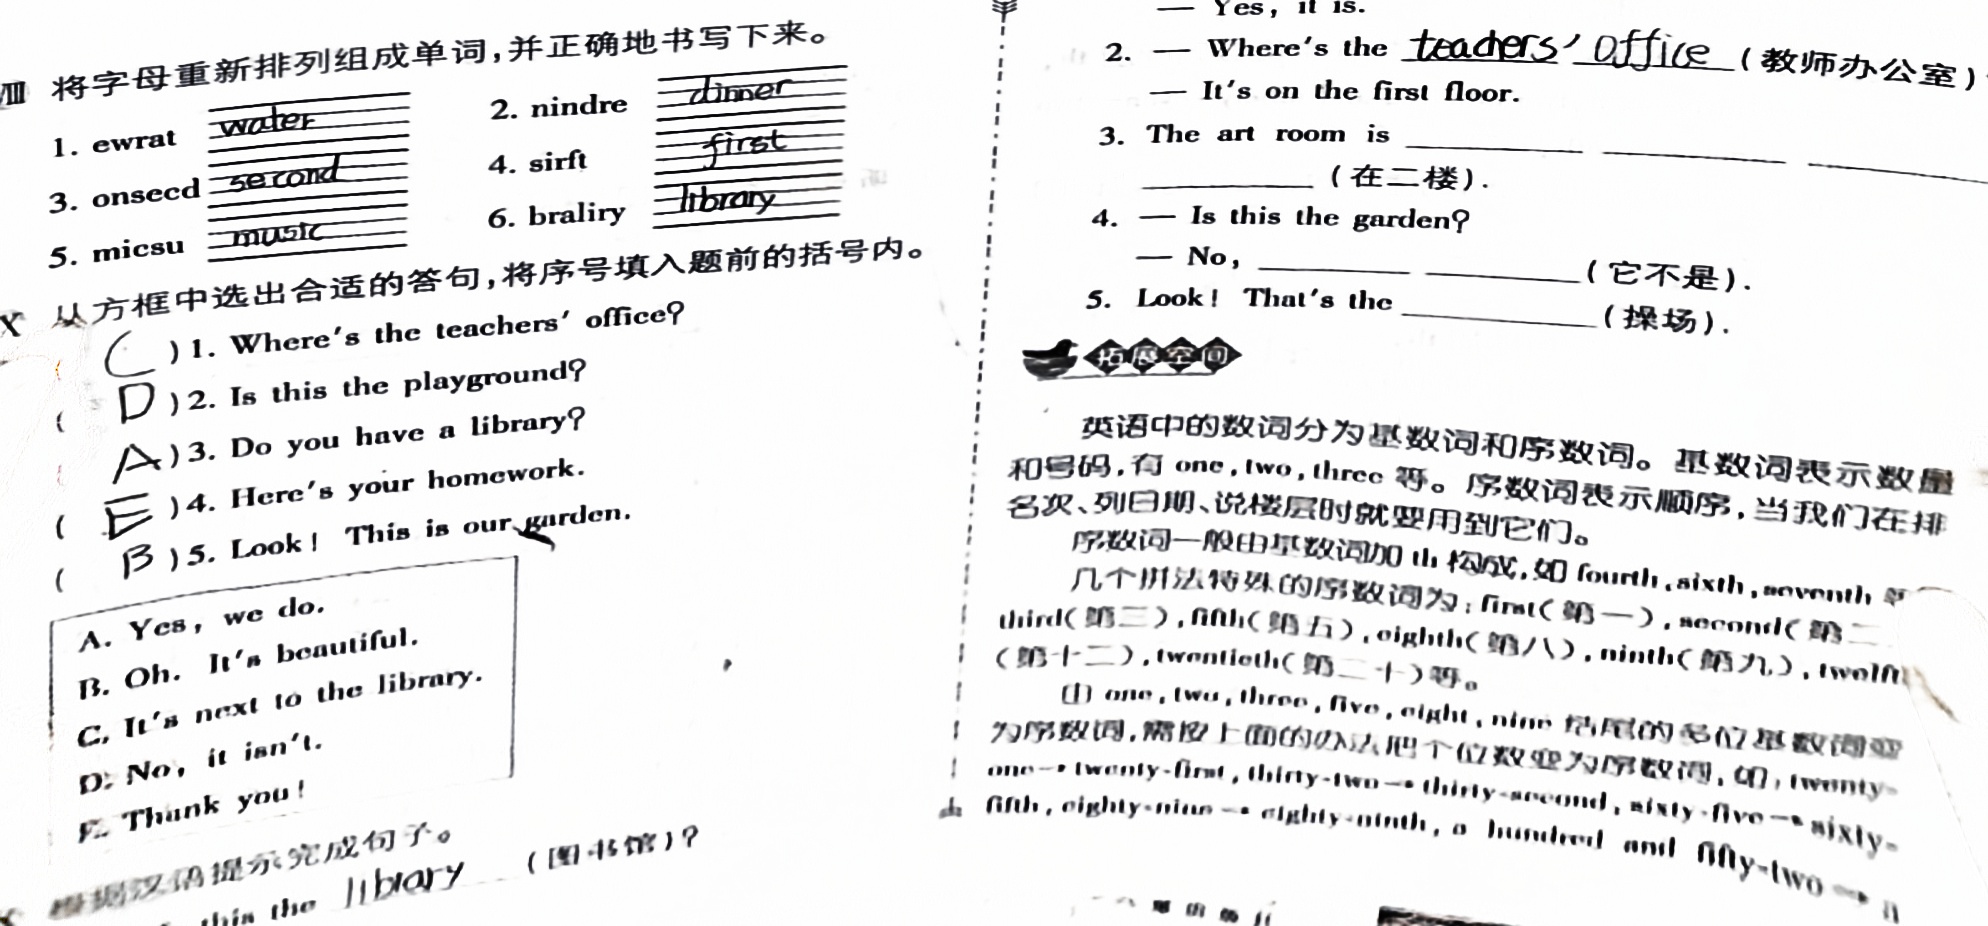 Ⅷ 将字母重新排列组成单词,并正确地书写下来。
1. ewrat water 2. nindre dinner
3. onsecd second 4. sirft first
5. micsu music 6. braliry library
从方框中选出合适的答句,将序号填入题前的括号内。
( C ) 1. Where's the teachers' office?
( D ) 2. Is this the playground?
( A ) 3. Do you have a library?
( E ) 4. Here's your homework.
( B ) 5. Look! This is our garden.
A. Yes, we do.
B. Oh. It's beautiful.
C. It's next to the library.
D. No, it isn't.
E. Thank you!
根据汉语提示完成句子。
this the library (图书馆)?
— Yes, it is.
2. — Where's the teachers' office (教师办公室)
— It's on the first floor.
3. The art room is
(在二楼).
4. — Is this the garden?
— No, (它不是).
5. Look! That's the (操场).
拓展空间
英语中的数词分为基数词和序数词。基数词表示数量
和号码,有 one, two, three 等。序数词表示顺序,当我们在排
名次、列日期、说楼层时就要用到它们。
序数词一般由基数词加 th 构成,如 fourth, sixth, seventh 等
几个拼法特殊的序数词为: first(第一), second(第二
third(第三), fifth(第五), eighth(第八), ninth(第九), twelft
(第十二), twentieth(第二十)等。
由 one, two, three, five, eight, nine 结尾的多位基数词变
为序数词,需按上面的办法把个位数变为序数词,如: twenty-
one → twenty-first, thirty-two → thirty-second, sixty-five → sixty-
fifth, eighty-nine → eighty-ninth, a hundred and fifty-two → a